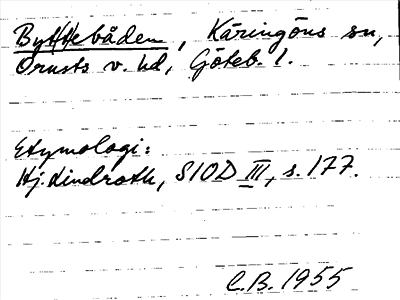 Byttebåden, Käringöns sn,
Orusts v. hd, Göteb. l.
Etymologi:
Hj. Lindroth, SIOD III, s. 177.
C.B. 1955